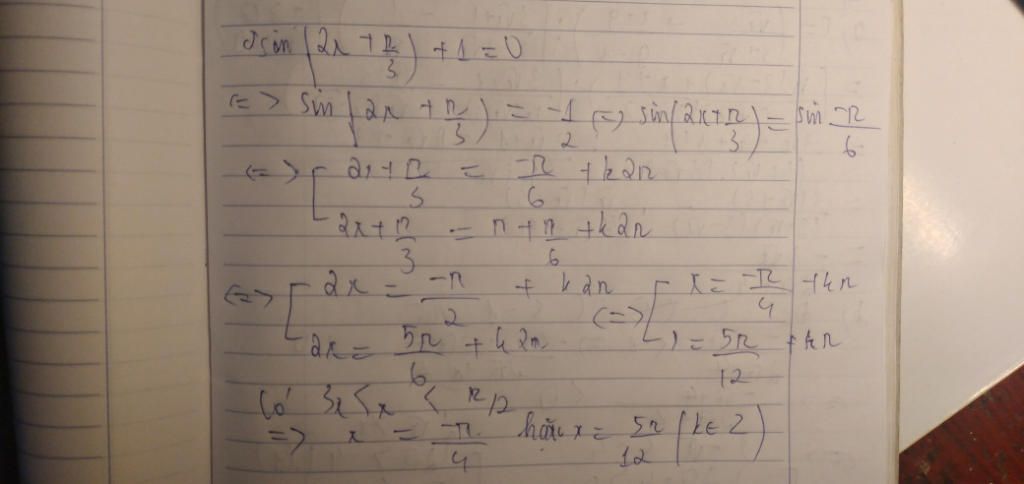 2sin(2x + π/3) + 1 = 0
<=> sin(2x + π/3) = -1/2 <=> sin(2x + π/3) = sin -π/6
<=> [ 2x + π/3 = -π/6 + k2π
2x + π/3 = π + π/6 + k2π
<=> [ 2x = -π/2 + k2π <=> [ x = -π/4 + kπ
2x = 5π/6 + k2π x = 5π/12 + kπ
Có < x < π/2
=> x = -π/4 hoặc x = 5π/12 (k∈Z)